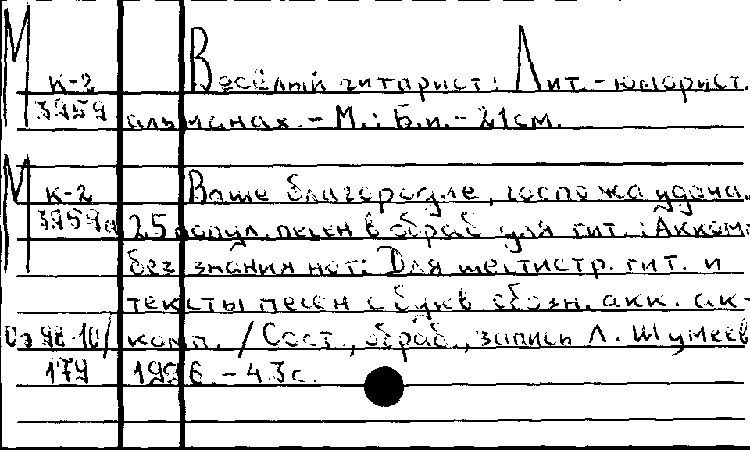 М Весёлый гитарист: Лит.-юморист.
к-2
3959 альманах. - М.: Б.и. - 21см.
М к-2 Ваше благородие, госпожа удача.
3959а 25 попул. песен в обраб для гит.: Акком
без знания нот: Для шестистр. гит. и
тексты песен с букв обозн. акк. ак-
Оэ 98-10/ комп. / Сост., обраб., запись Л. Шумеев
179 1996. - 43с.